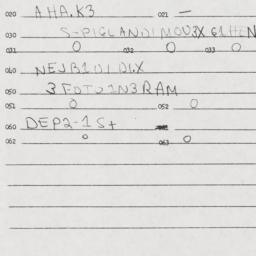 020 AHA.K3 021 —
030 S-PIGLANDIMOV3X G1HEN
031 0 032 0 033 0
040 NEJR1
050 3 FOTO1N3RAM
051 0 052 0
060 DEP2-1 S+
062 0 063 0